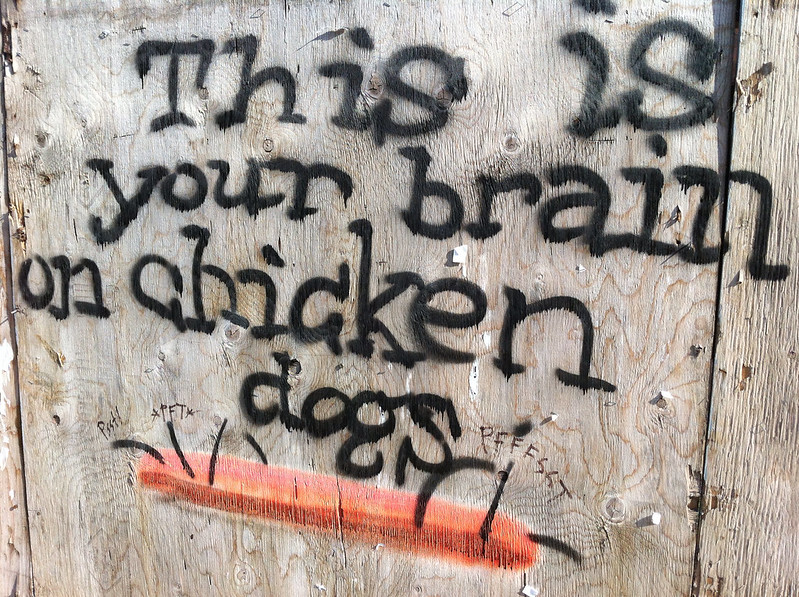 This is
your brain
on chicken
dogs
Psst!
*PFT*
PFFFSST